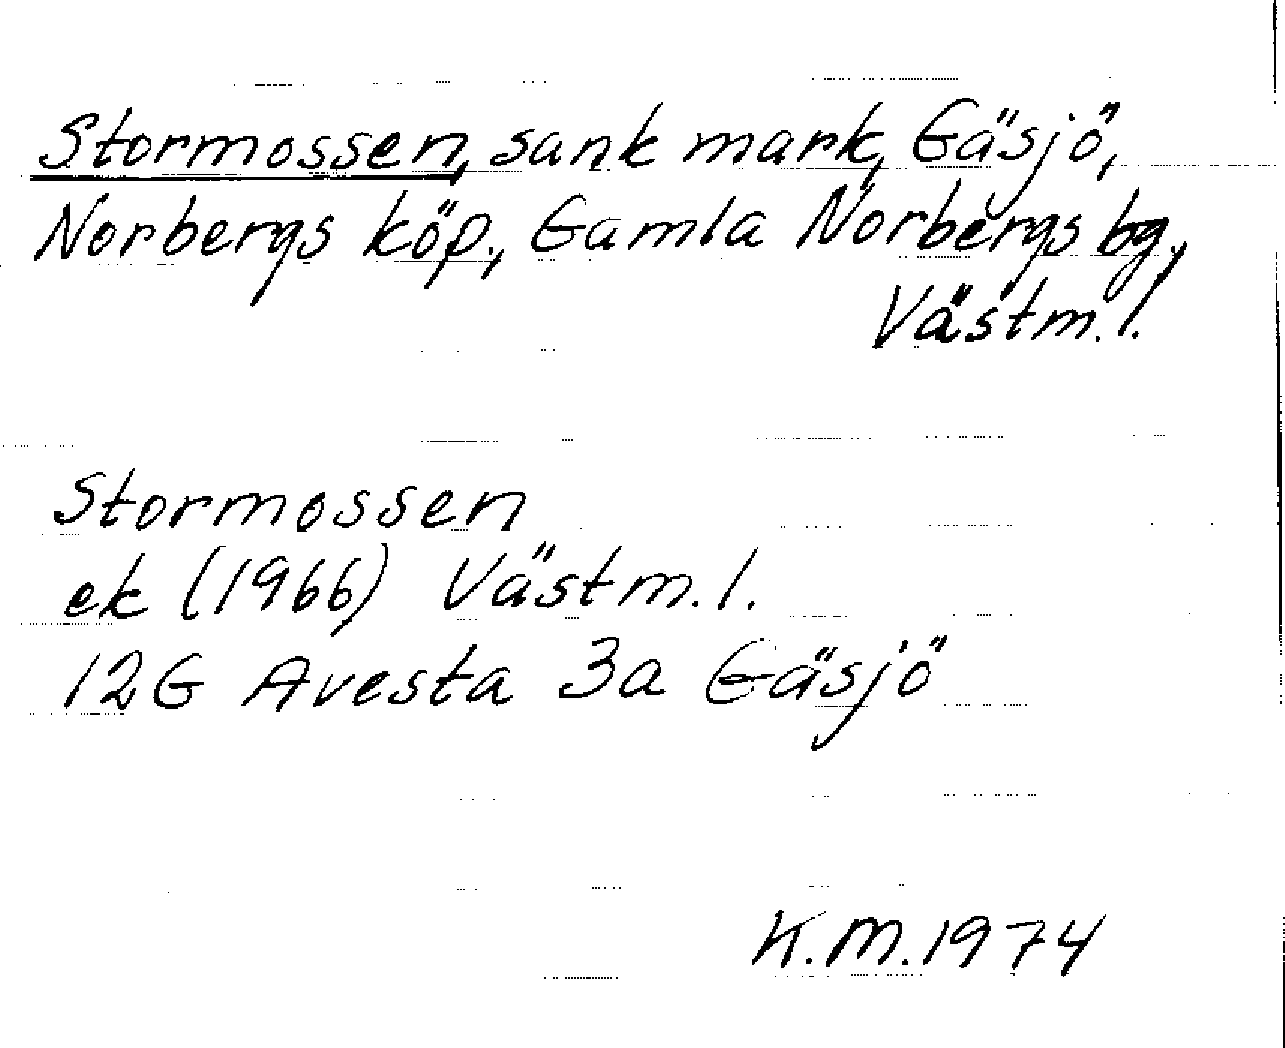 Stormossen, sank mark, Gäsjö,
Norbergs köp., Gamla Norbergs bg,
Västm.l.
Stormossen
ek (1966) Västm.l.
12G Avesta 3a Gäsjö
K.M.1974